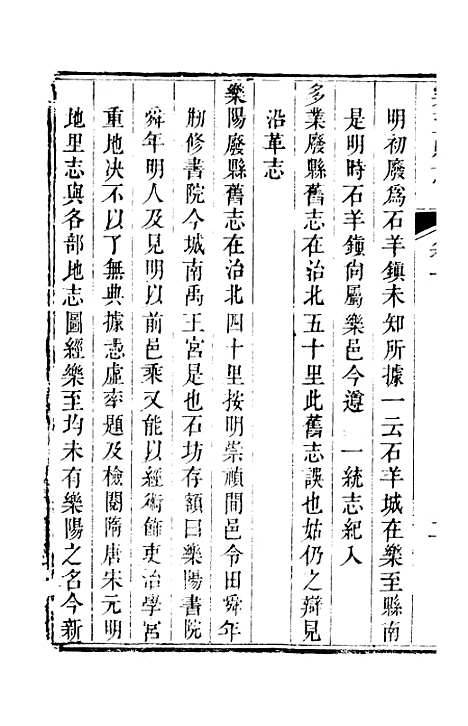 明初廢爲石羊鎮未知所據一云石羊城在樂至縣南
是明時石羊鎮尙屬樂邑今遵 一統志紀入
多業廢縣舊志在治北五十里此舊志誤也姑仍之辯見
沿革志
樂陽廢縣舊志在治北四十里按明崇禎間邑令田舜年
剏修書院今城南禹王宮是也石坊存額曰樂陽書院
舜年明人及見明以前邑乘又能以經術飾吏治學宮
重地决不以了無典據憑虛率題及檢閱隋唐宋元明
地里志與各部地志圖經樂至均未有樂陽之名今新